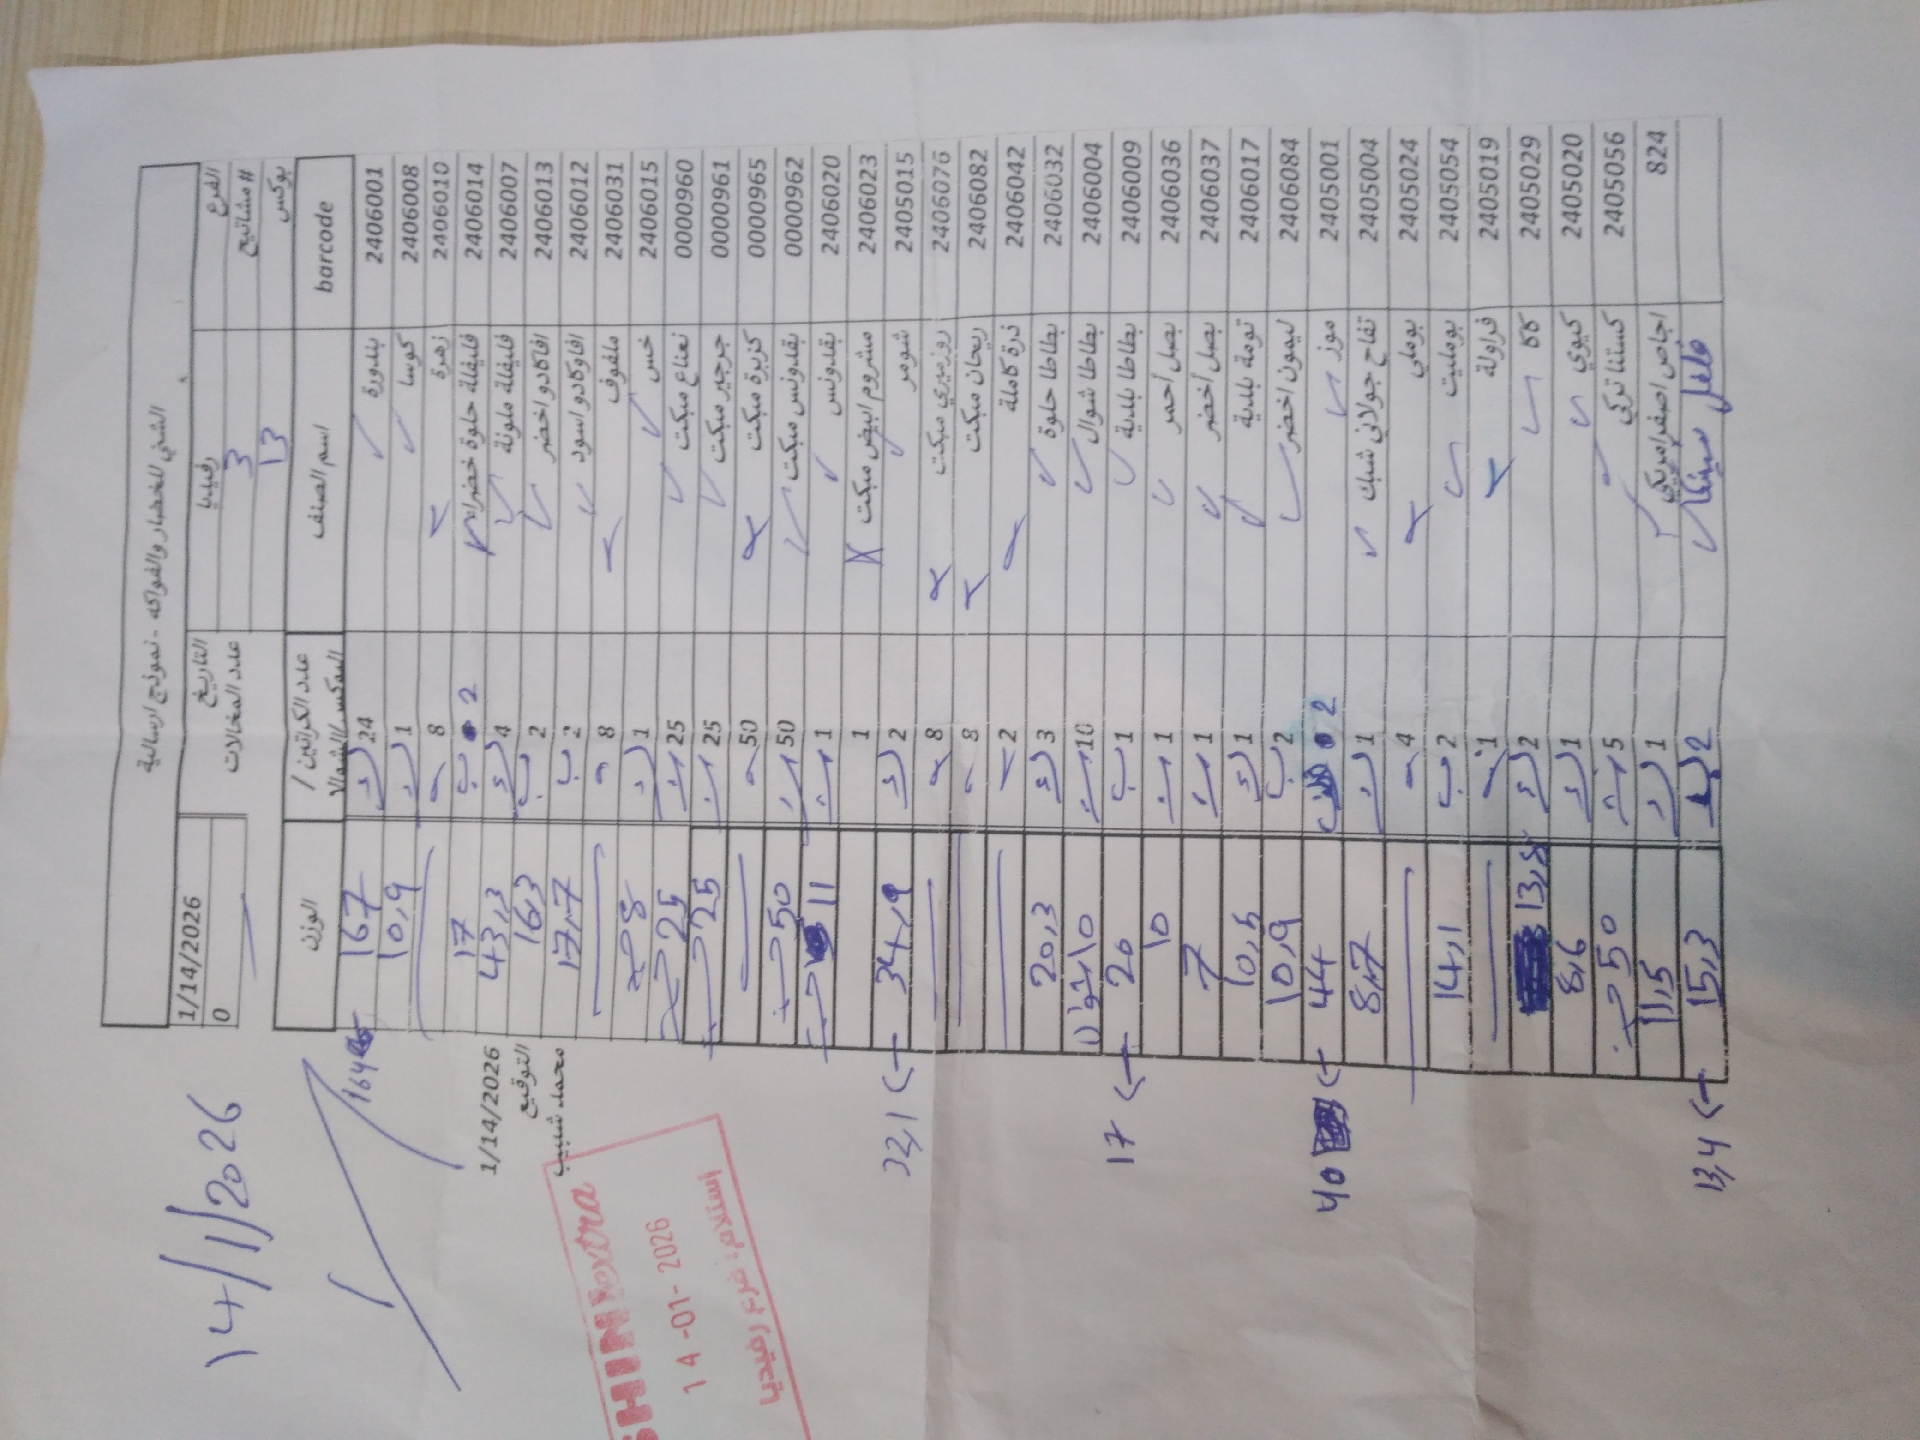 14/1/2026
الشني للخضار والفواكه - نموذج ارسالية
الفرع رفيديا التاريخ 1/14/2026
# مشاتيح 3 عدد المخالات 0
بوكس 13
barcode اسم الصنف عدد الكراتين / البوكس/الشوالا الوزن
2406001 بندورة 24 167
2406008 كوسا 1 10,9
2406010 زهرة 8
2406014 فليفلة حلوة خضراء 2 ب 17
2406007 فليفلة ملونة 4 43,3
2406013 افاكادو اخضر 2 ب 16,3
2406012 افاوكادو اسود 2 ب 17,7
2406031 ملفوف 8
2406015 خس 1 8
00000960 نعناع مبكت 25 25
00000961 جرجير مبكت 25 25
00000965 كزبرة مبكت 50
00000962 بقدونس مبكت 50 50
2406020 بقدونس 1 11
2406023 مشروم ابيض مبكت 1
2405015 شومر 2 34,9 32,1
2406076 روزميري مبكت 8
2406082 ريحان مبكت 8
2406042 ذرة كاملة 2
2406032 بطاطا حلوة 3 20,3
2406004 بطاطا شوال 10 10 شوال
2406009 بطاطا بلدية 1 ب 20 17
2406036 بصل احمر 1 10
2406037 بصل اخضر 1 7
2406017 ثومة بلدية 1 10,5
2406084 ليمون اخضر 2 ب 10,9
2405001 موز 2 44 40
2405004 تفاح جولاني شبك 1 8,7
2405024 بوملي 4
2405054 بومليت 2 ب 14,1
2405019 فراولة 1
2405029 كاكا 2 13,8
2405020 كيوي 1 8,6
2405056 كستنا تركي 5 50
824 اجاص اصفر امريكي 1 11,5
2 15,3 13,4
164
1/14/2026
التوقيع
محمد شبيب
SHINI extra
14-01-2026
استلام: فرع رفيديا